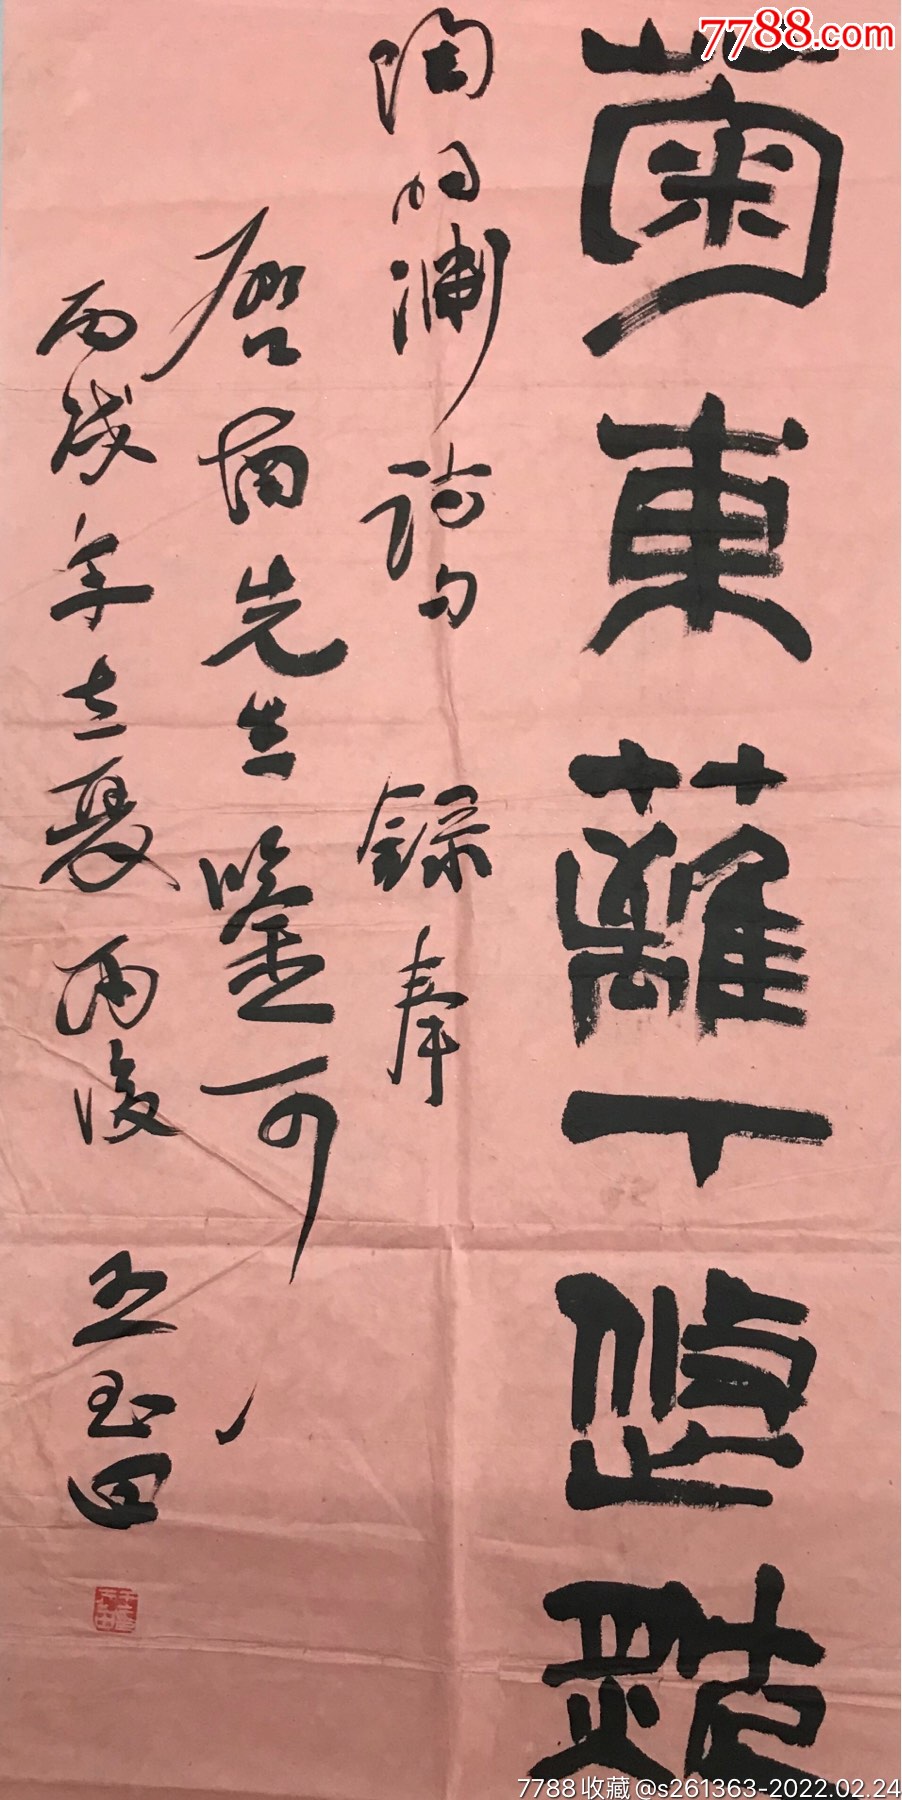 7788.com
菊東蘺下悠然
陶明淵詩句 錄奉
啓 先生鑒可
丙戌年立夏雨後 王玉田
7788收藏@s261363-2022.02.24